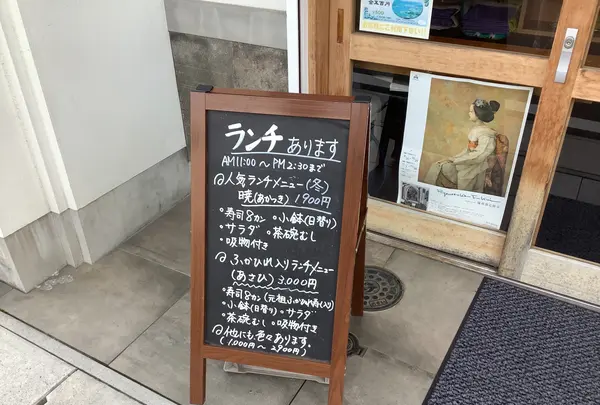 ランチあります
AM11:00～PM2:30まで
@人気ランチメニュー(冬)
暁(あかつき)1900円
・寿司8カン・小鉢(日替り)
・サラダ・茶碗むし
・吸物付き
@ふかひれ入りランチメニュー
(あさひ)3,000円
・寿司8カン(元祖ふかひれ寿し入り)
・小鉢(日替り)・サラダ
・茶碗むし・吸物付き
@他にも色々あります。
(1,000円～2900円)